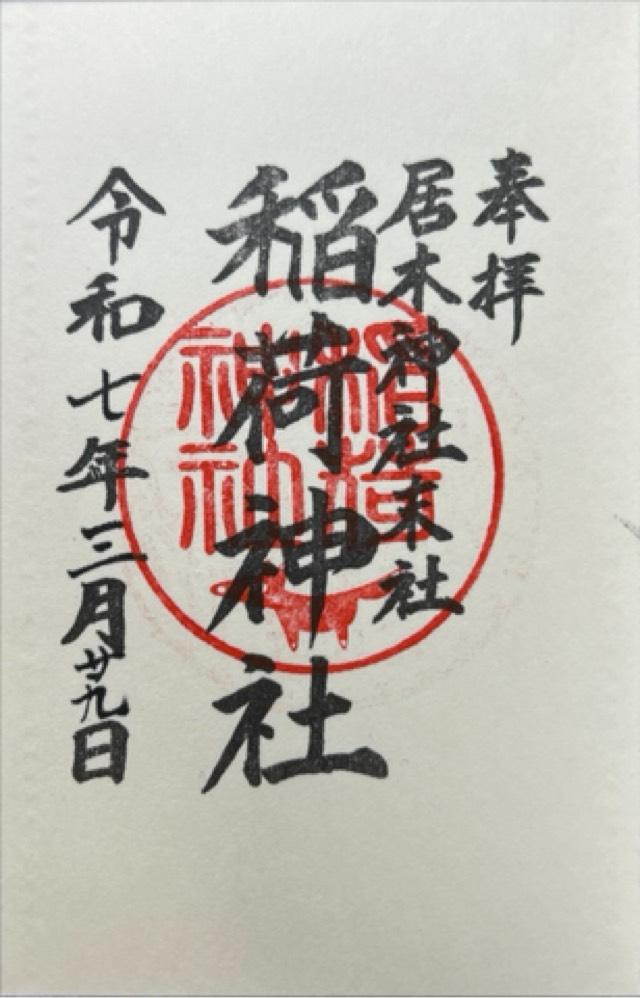 奉拝
居木神社末社
稲荷神社
令和七年三月廿九日